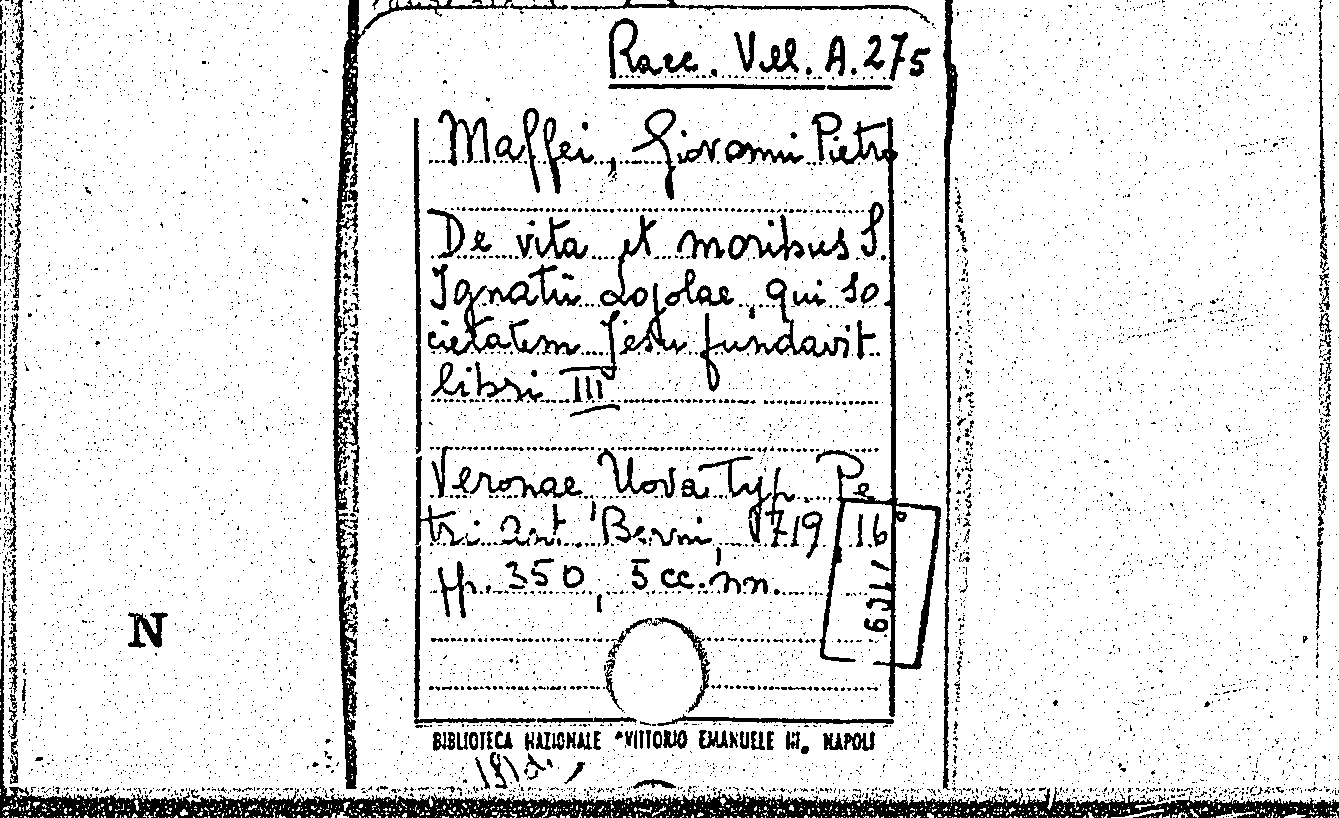 Racc. Vill. A. 275
Maffei, Giovanni Pietro
De vita et moribus S.
Ignatii Lojolae, qui So.
cietatem Jesu fundavit
libri III
Veronae, Nova Typ. Pe
tri Ant. Berni, 1719 16°
pp. 350, 5 cc. nn.
N
BIBLIOTECA NAZIONALE "VITTORIO EMANUELE III„ NAPOLI